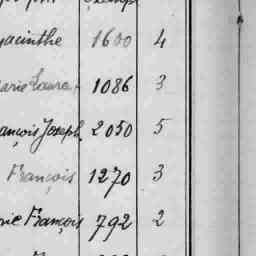 yacinthe 1600 4
Marie Laure 1086 3
ançois Joseph 2050 5
François 1270 3
rie François 792 2